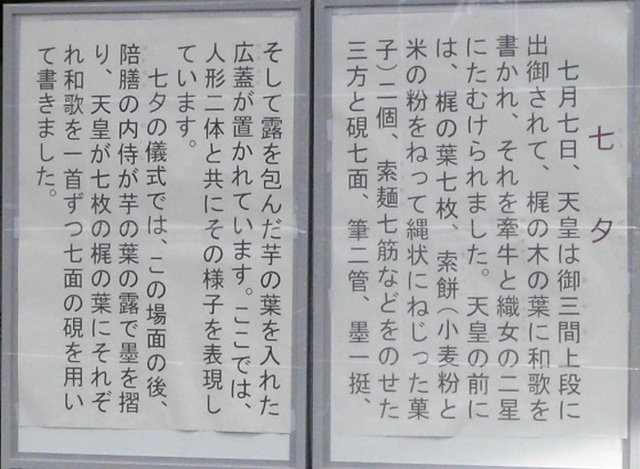 七夕
七月七日、天皇は御三間上段に
出御されて、梶の木の葉に和歌を
書かれ、それを牽牛と織女の二星
にたむけられました。天皇の前に
は、梶の葉七枚、索餅(小麦粉と
米の粉をねって縄状にねじった菓
子)二個、索麺七筋などをのせた
三方と硯七面、筆二管、墨一挺、
そして露を包んだ芋の葉を入れた
広蓋が置かれています。ここでは、
人形二体と共にその様子を表現し
ています。
七夕の儀式では、この場面の後、
陪膳の内侍が芋の葉の露で墨を摺
り、天皇が七枚の梶の葉にそれぞ
れ和歌を一首ずつ七面の硯を用い
て書きました。